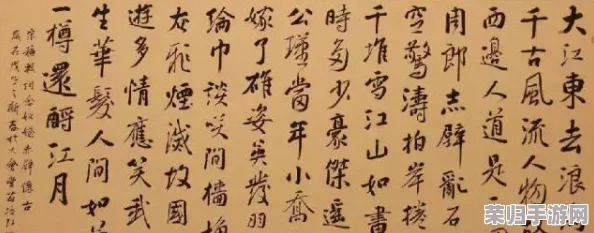 大江東去浪
千古風流人物
西邊人道是三
周郎赤壁亂石
空驚濤拍岸捲
千堆雪江山如畫
時多少豪傑遥
公瑾當年小喬
嫁了雄姿英發羽
綸巾談笑間檣
灰飛煙滅故國
遊多情應笑我
生華髮人間如
一樽還酹江月
詞念奴嬌赤壁懷古
荣归手游网